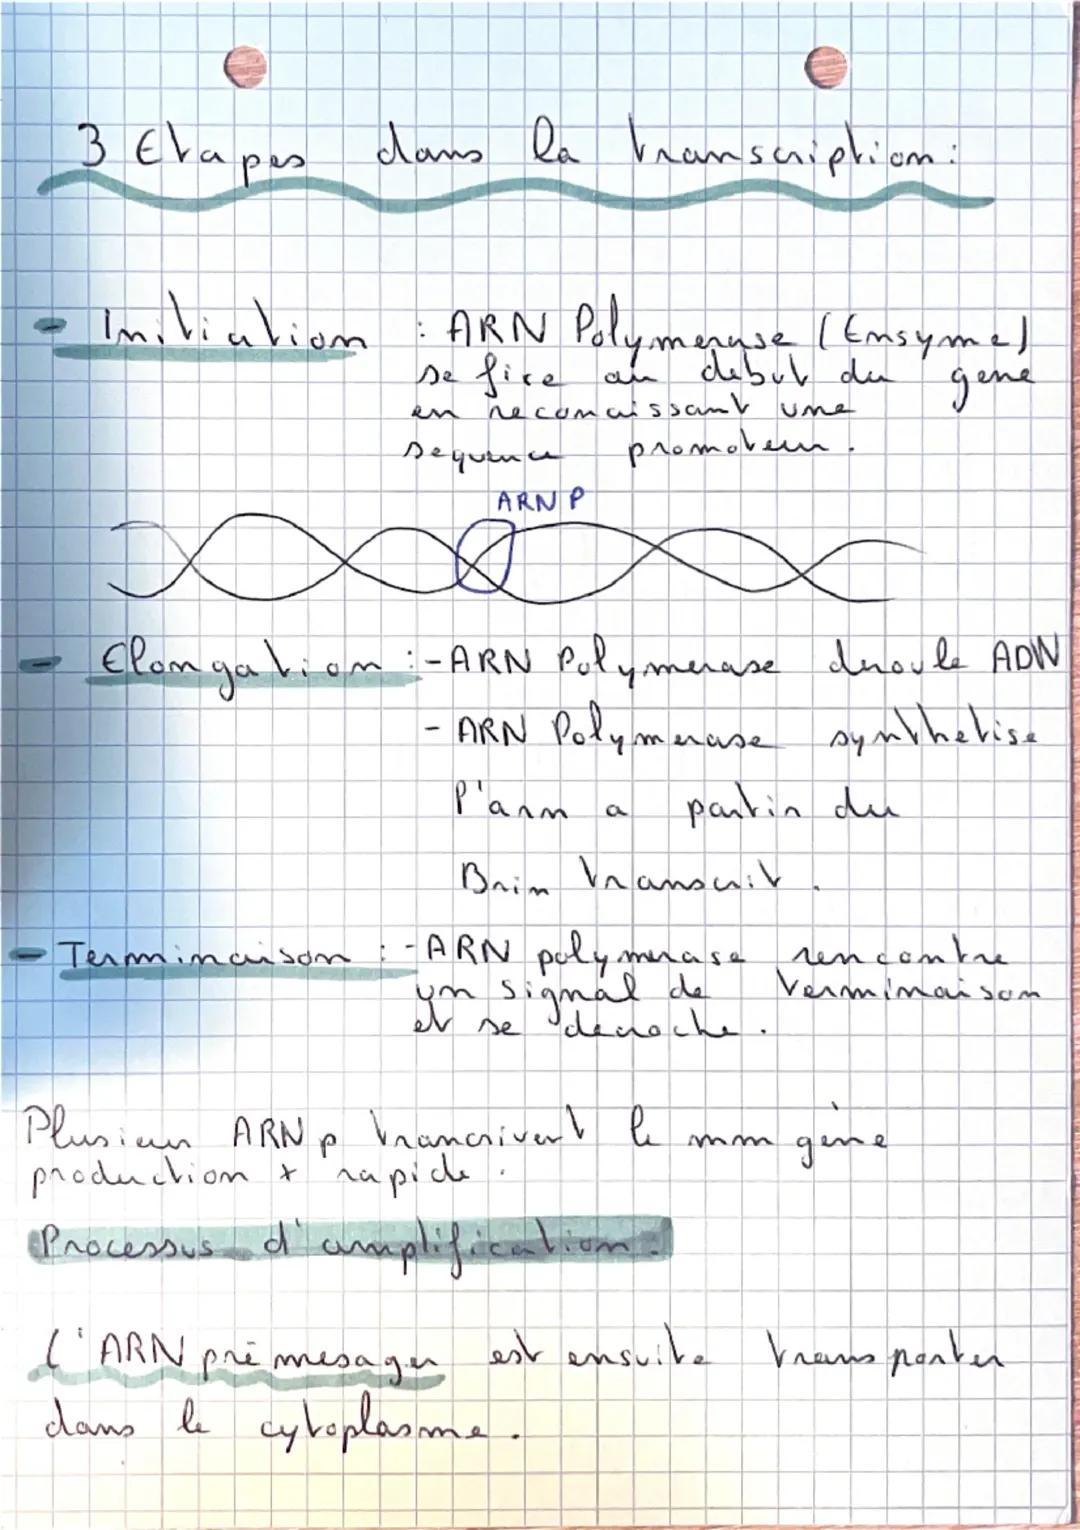 3 Etapes dans la transcription :
- Initiation : ARN Polymerase (Ensyme)
se fixe au debut du gene
en reconaissant une
sequence promoteur.
ARN P
- Elongation : - ARN Polymerase deroule ADN
- ARN Polymerase synthetise
l'arn a partir du
Brin transcrit.
- Terminaison : - ARN polymerase rencontre
un signal de terminaison
et se decroche.
Plusieur ARN p trancrivent le mm gène
production + rapide.
Processus d'amplification.
L'ARN pré mesager est ensuite transporter
dans le cytoplasme.